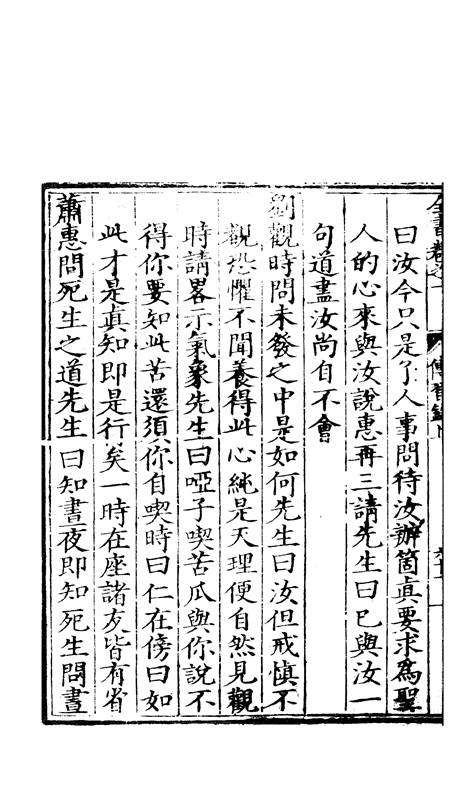 全書卷之一 傳習錄
曰汝今只是了人事問待汝辦箇眞要求爲聖
人的心來與汝說惠再三請先生曰已與汝一
句道盡汝尚自不會
劉觀時問未發之中是如何先生曰汝但戒慎不
覩恐懼不聞養得此心純是天理便自然見觀
時請畧示氣象先生曰啞子喫苦瓜與你說不
得你要知此苦還須你自喫時曰仁在傍曰如
此才是眞知即是行矣一時在座諸友皆有省
蕭惠問死生之道先生曰知晝夜即知死生問晝